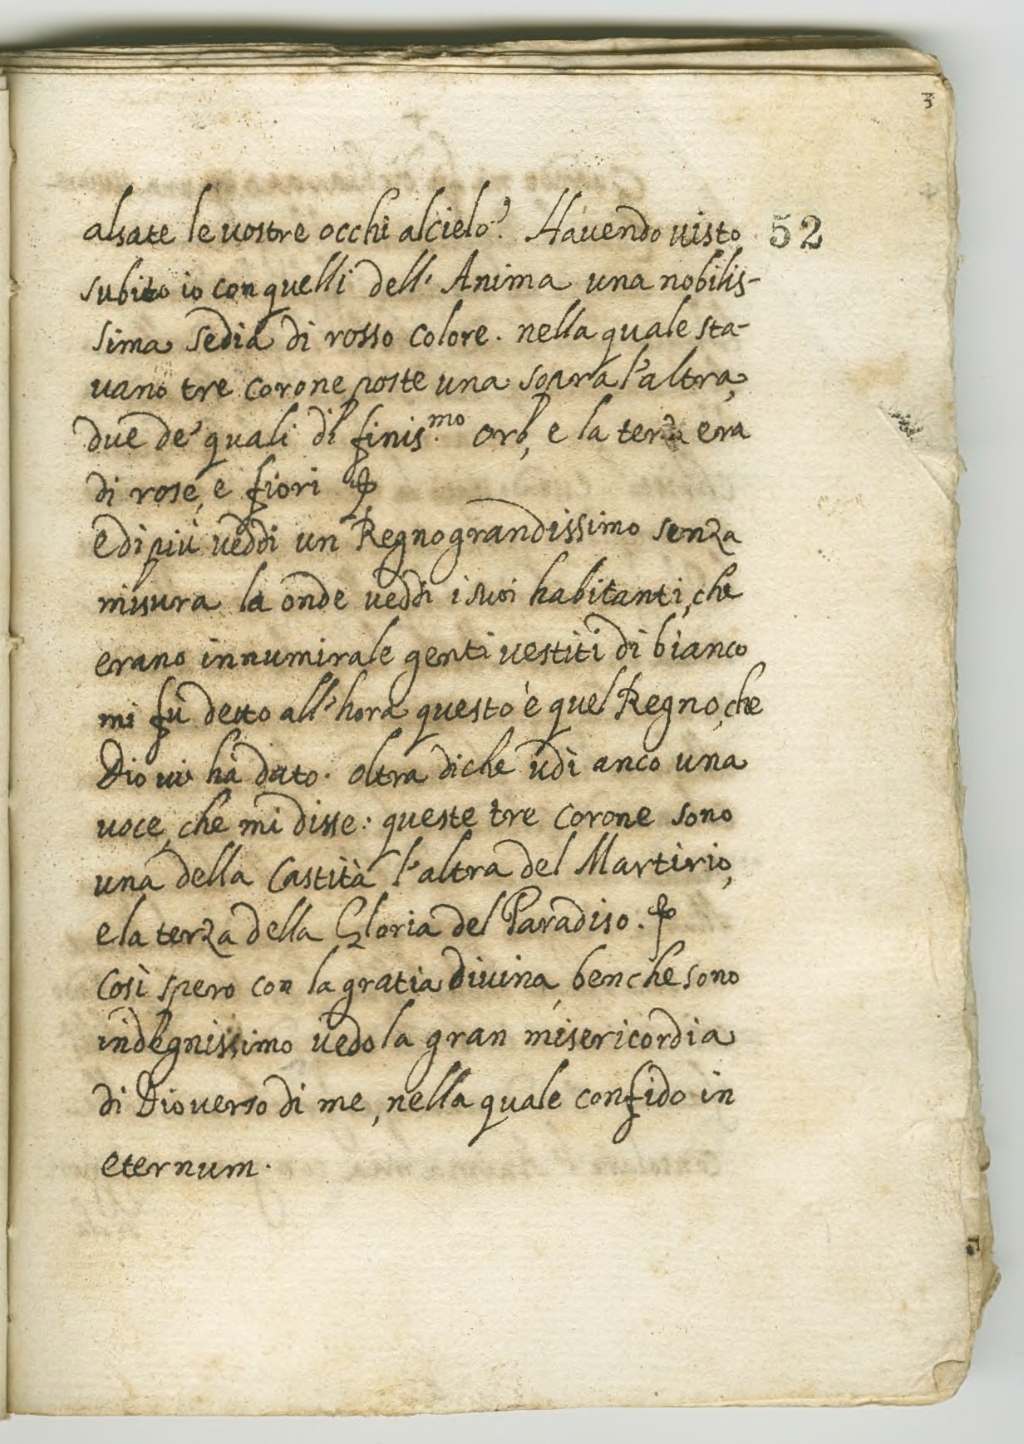 3
alsate le vostre occhi al cielo?. Havendo visto 52
subito io con quelli dell' Anima una nobilis-
sima sedia di rosso colore. nella quale sta-
uano tre corone poste una sopra l'altra,
due de' quali di finis.mo oro, e la terza era
di rose, e fiori
E di più ueddi un Regno grandissimo senza
misura la onde ueddi i suoi habitanti, che
erano innumirale genti uestiti di bianco
mi fù detto all'hora questo è quel Regno, che
Dio ui hà dato. oltra di che udì anco una
uoce, che mi disse: queste tre corone sono
una della Castità l'altra del Martirio,
e la terza della Gloria del Paradiso.
Così spero con la gratia diuina, benche sono
indegnissimo uedo la gran misericordia
di Dio uerso di me, nella quale confido in
eternum.